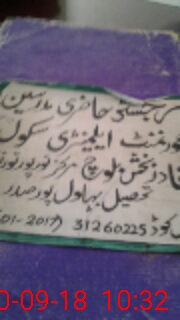 رجسٹر حاضری مدرسین
گورنمنٹ ایلیمنٹری سکول
قادر بخش بلوچ مرکز نور پور نورنگا
تحصیل بہاول پور صدر
کوڈ 31260225 (01-2017)
0-09-18 10:32